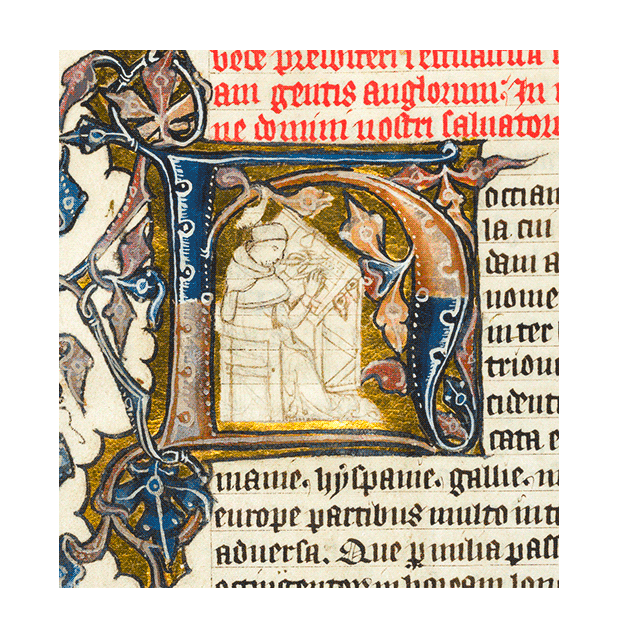 bede presbiteri
am gentis anglorum: In
ne domini nostri saluatori
occian
la cui
dam a
nome
inter
trion
cidenti
cata e
manie. hyspanie. gallie. m
europe partibus multo int
aduersa. Que p milia pass
in boream lon